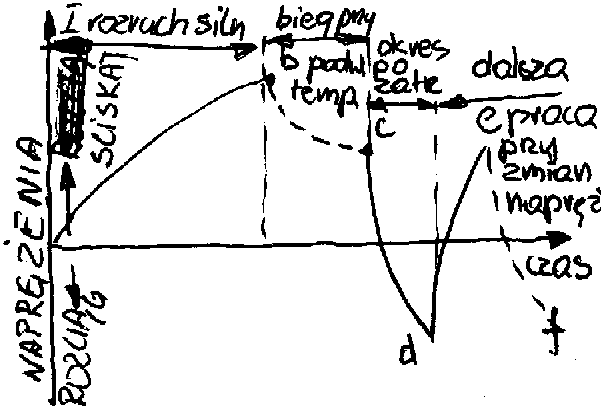 I rozruch siln
bieg pry
b podw
temp
okres
po
zatrz
c
dalsza
e praca
pry
zmian
napręż
ŚCISKAJ
NAPRĘŻENIA
ROZCIĄG
czas
d
f